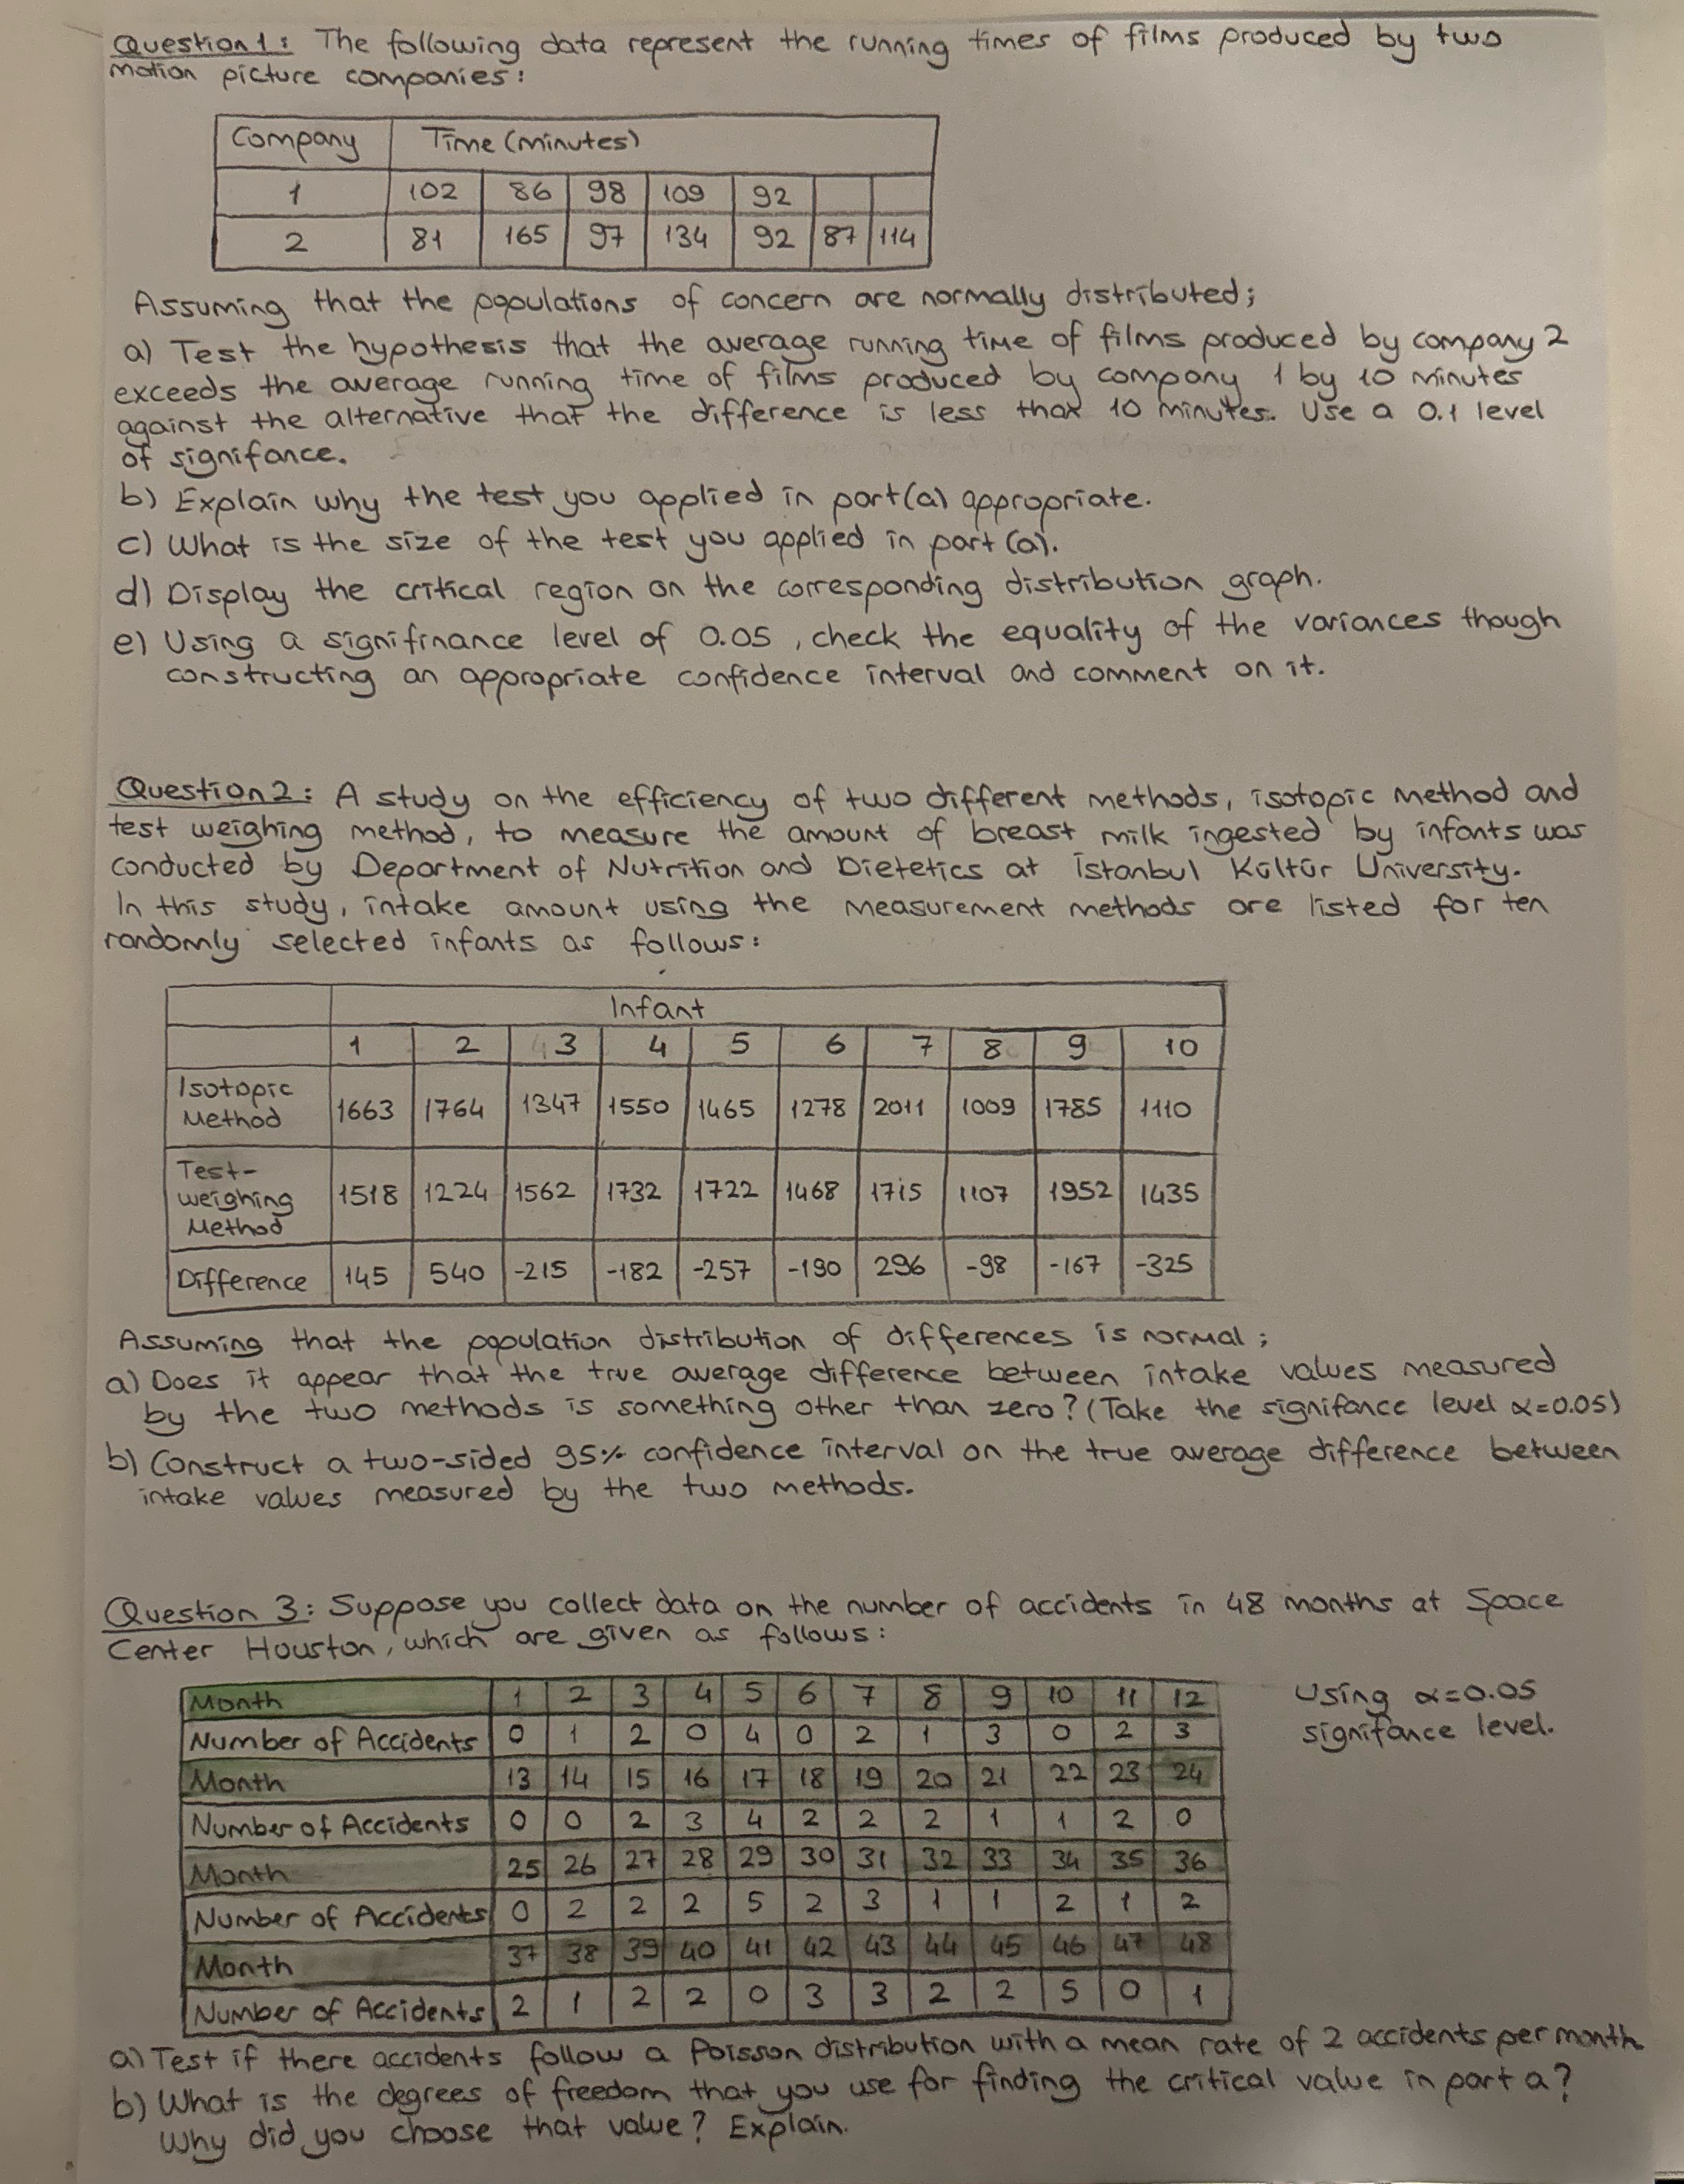 Question 1: The following data represent the running times of films produced by two
motion picture companies:
Company Time (minutes)
1 102 86 98 109 92
2 81 165 97 134 92 87 114
Assuming that the populations of concern are normally distributed;
a) Test the hypothesis that the average running time of films produced by company 2
exceeds the average running time of films produced by company 1 by 10 minutes
against the alternative that the difference is less than 10 minutes. Use a 0.1 level
of signifance.
b) Explain why the test you applied in part(a) appropriate.
c) What is the size of the test you applied in part (a).
d) Display the critical region on the corresponding distribution graph.
e) Using a signifinance level of 0.05, check the equality of the variances though
constructing an appropriate confidence interval and comment on it.
Question 2: A study on the efficiency of two different methods, isotopic method and
test weighing method, to measure the amount of breast milk ingested by infants was
conducted by Department of Nutrition and Dietetics at İstanbul Kültür University.
In this study, intake amount using the measurement methods are listed for ten
randomly selected infants as follows:
Infant
1 2 3 4 5 6 7 8 9 10
Isotopic
Method 1663 1764 1347 1550 1465 1278 2011 1009 1785 1110
Test-
weighing 1518 1224 1562 1732 1722 1468 1715 1107 1952 1435
Method
Difference 145 540 -215 -182 -257 -190 296 -98 -167 -325
Assuming that the population distribution of differences is normal;
a) Does it appear that the true average difference between intake values measured
by the two methods is something other than zero? (Take the signifance level α=0.05)
b) Construct a two-sided 95% confidence interval on the true average difference between
intake values measured by the two methods.
Question 3: Suppose you collect data on the number of accidents in 48 months at Space
Center Houston, which are given as follows:
Month 1 2 3 4 5 6 7 8 9 10 11 12
Using α=0.05
signifance level.
Number of Accidents 0 1 2 0 4 0 2 1 3 0 2 3
Month 13 14 15 16 17 18 19 20 21 22 23 24
Number of Accidents 0 0 2 3 4 2 2 2 1 1 2 0
Month 25 26 27 28 29 30 31 32 33 34 35 36
Number of Accidents 0 2 2 2 5 2 3 1 1 2 1 2
Month 37 38 39 40 41 42 43 44 45 46 47 48
Number of Accidents 2 1 2 2 0 3 3 2 2 5 0 1
a) Test if there accidents follow a Poisson distribution with a mean rate of 2 accidents per month
b) What is the degrees of freedom that you use for finding the critical value in part a?
Why did you choose that value? Explain.